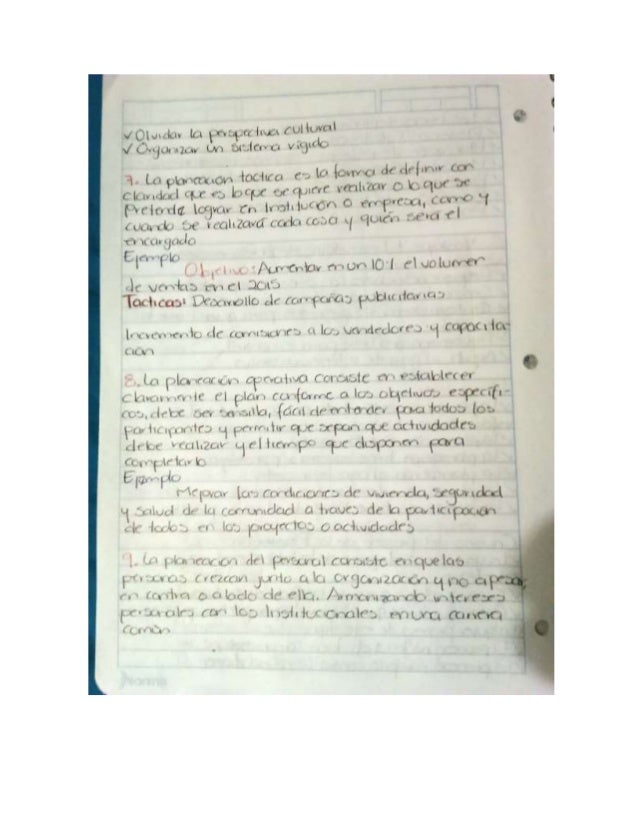 ✓ Olvidar la perspectiva cultural
✓ Organizar un sistema rígido
7. La planeación táctica es la forma de definir con
claridad que es lo que se quiere realizar o lo que se
Pretende lograr en Institución o empresa, como y
cuando se realizará cada cosa y quién será el
encargado
Ejemplo
Objetivo: Aumentar en un 10% el volumen
de ventas en el 2015
Tacticas: Desarrollo de campañas publicitarias
Incremento de comisiones a los vendedores y capacita-
ción
8. La planeación operativa consiste en establecer
claramente el plan conforme a los objetivos especifi-
cos, debe ser sensilla, fácil de entender para todos los
participantes y permitir que sepan que actividades
debe realizar y el tiempo que disponen para
completarlo
Ejemplo
Mejorar las condiciones de vivienda, seguridad
y salud de la comunidad a traves de la participación
de todos en los proyectos o actividades
9. La planeación del personal consiste en que las
personas crezcan junto a la organización y no a pesar,
en contra o a lado de ella. Armonizando intereses
personales con los Institucionales en una carrera
común
Norma